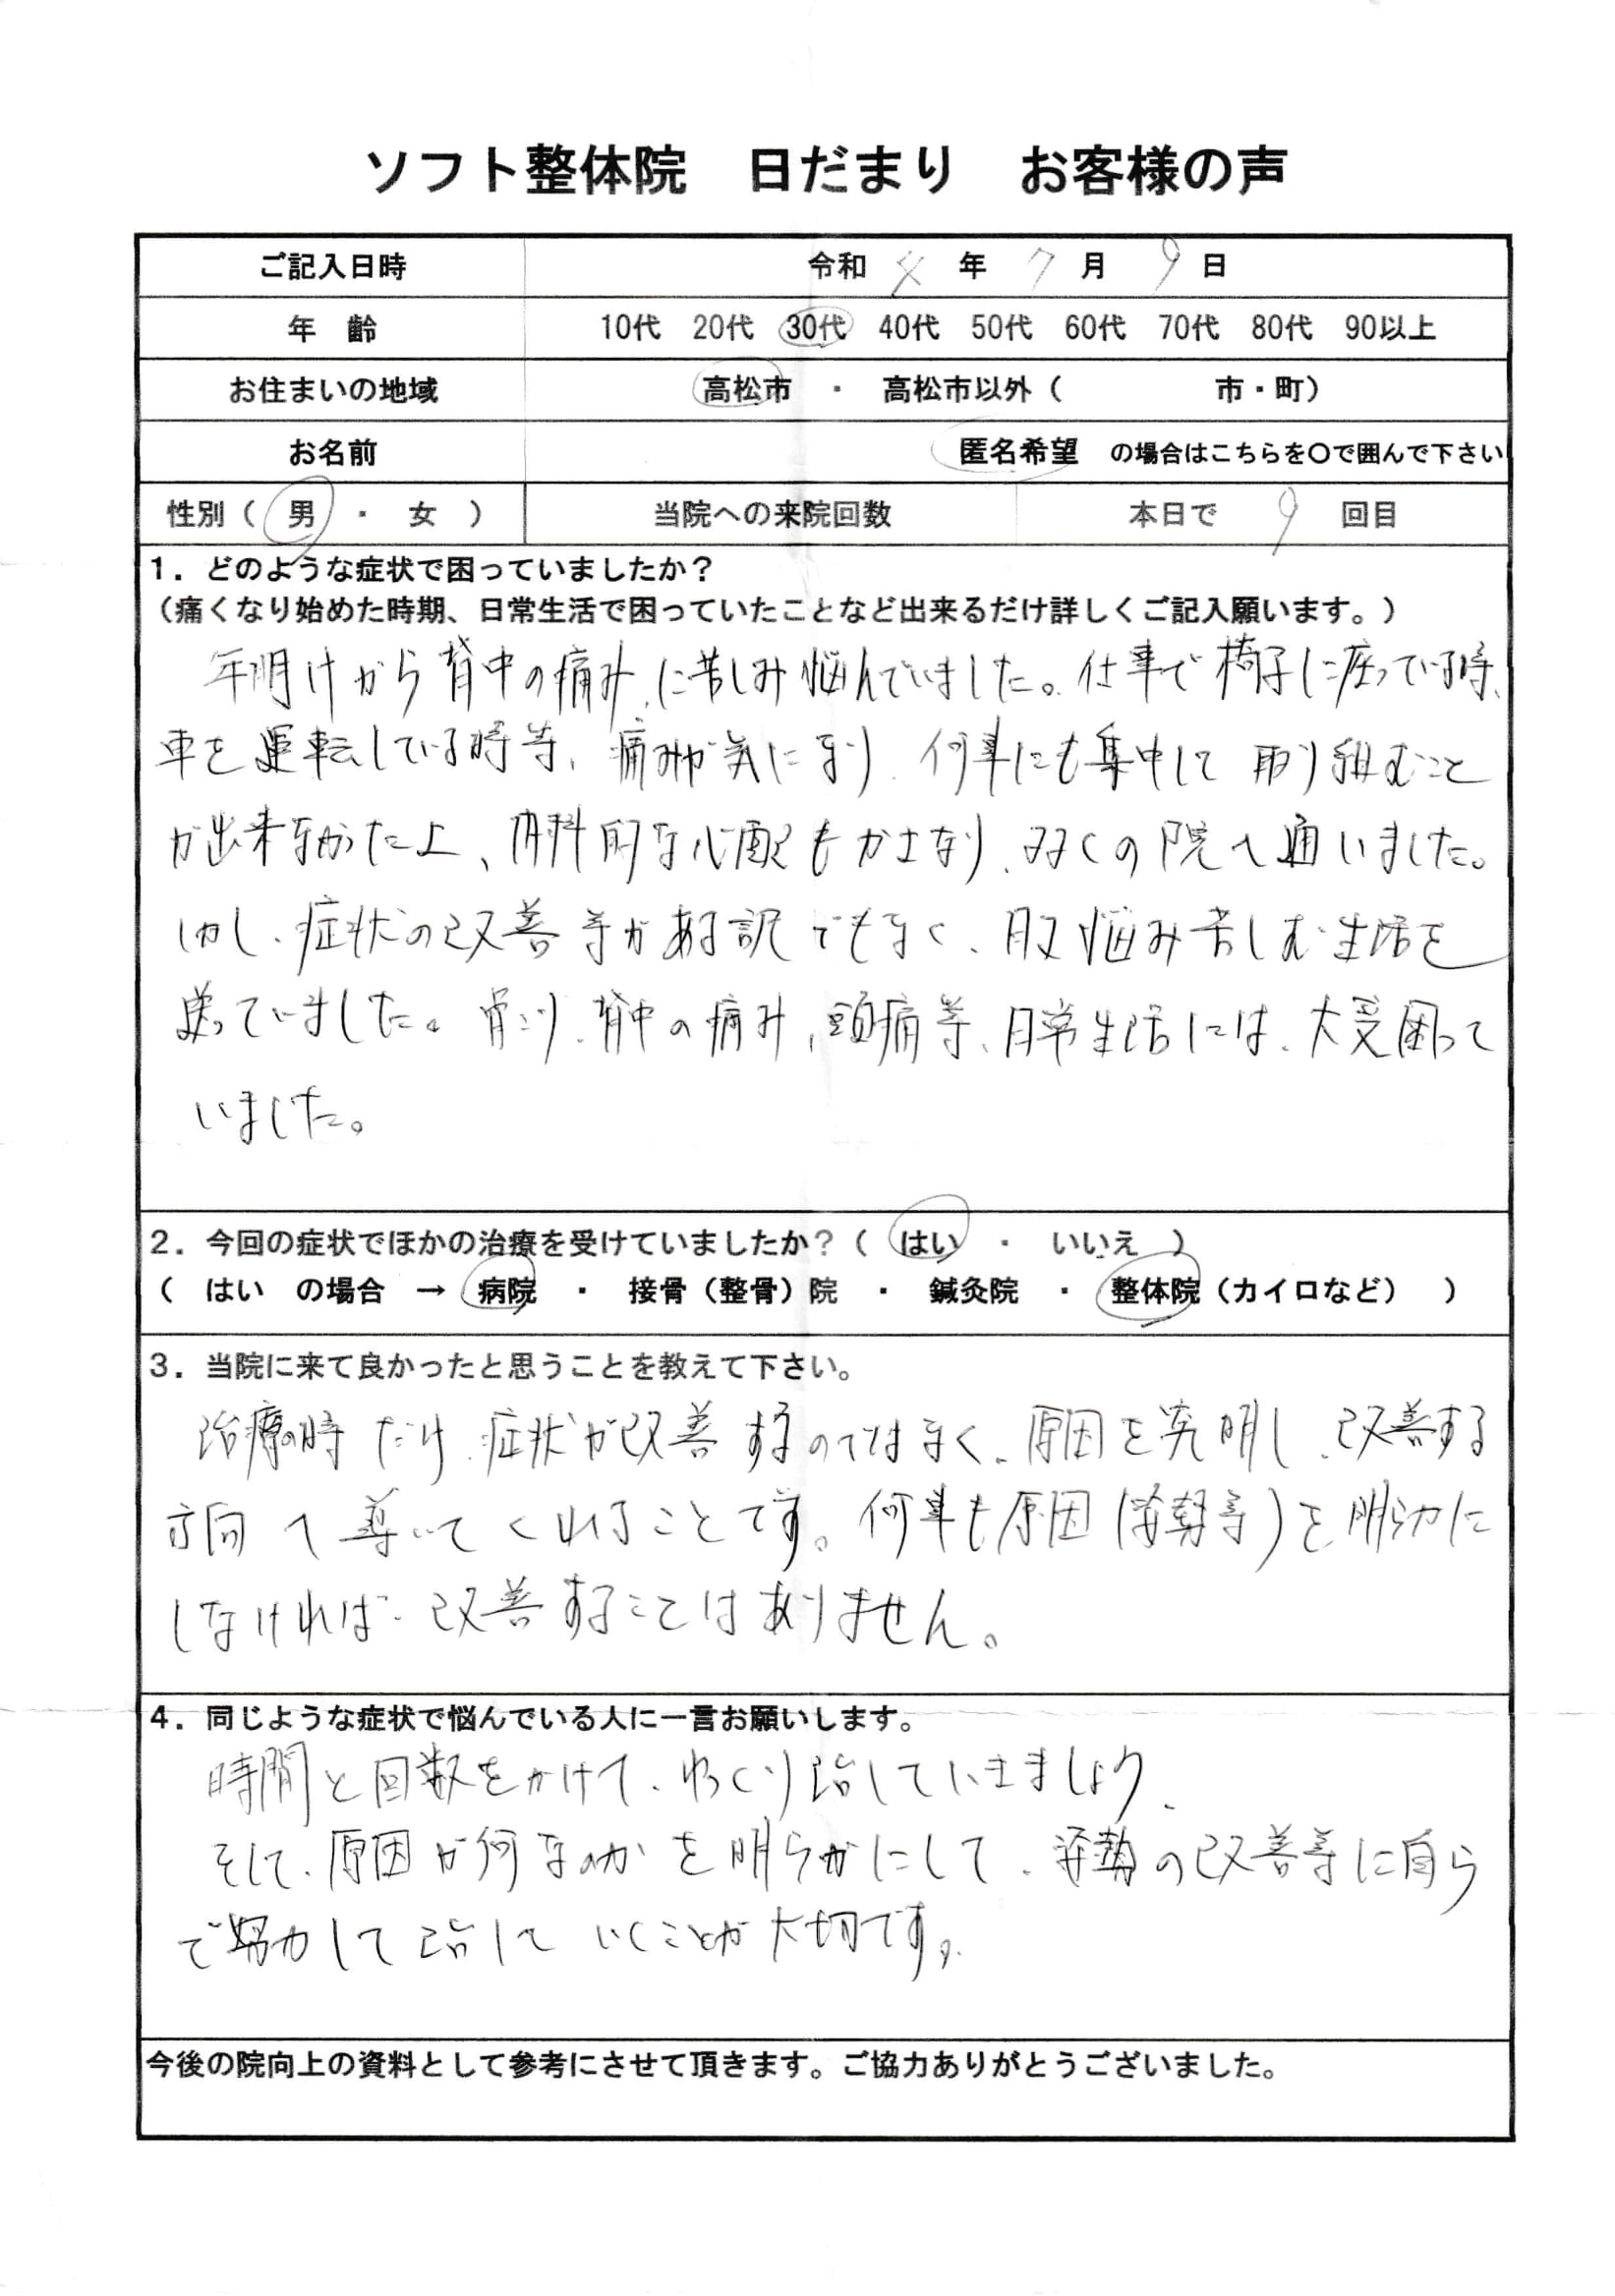 ソフト整体院　日だまり　お客様の声
ご記入日時　令和 4 年 7 月 9 日
年　齢　10代　20代　30代　40代　50代　60代　70代　80代　90以上
お住まいの地域　高松市　・　高松市以外（　　　　　市・町）
お名前　匿名希望　の場合はこちらを〇で囲んで下さい
性別（　男　・　女　）　当院への来院回数　本日で　9　回目
1．どのような症状で困っていましたか？
（痛くなり始めた時期、日常生活で困っていたことなど出来るだけ詳しくご記入願います。）
年明けから背中の痛みに苦しみ悩んでいました。仕事で椅子に座っている時、
車を運転している時等、痛みが気になり、何事にも集中して取り組むこと
が出来なかった上、内科的な心配もかさなり、多くの院へ通いました。
しかし、症状の改善等がある訳でもなく、日々悩み苦しむ生活を
送っていました。肩こり、背中の痛み、頭痛等、日常生活には、大変困って
いました。
2．今回の症状でほかの治療を受けていましたか？（　はい　・　いいえ　）
（　はい　の場合　→　病院　・　接骨（整骨）院　・　鍼灸院　・　整体院（カイロなど）　）
3．当院に来て良かったと思うことを教えて下さい。
治療の時だけ、症状が改善するのではなく、原因を究明し、改善する
方向へ導いてくれることです。何事も原因（姿勢等）を明らかに
しなければ、改善することはありません。
4．同じような症状で悩んでいる人に一言お願いします。
時間と回数をかけて、ゆっくり治していきましょう、
そして、原因が何なのかを明らかにして、姿勢の改善等に自ら
で努力して治していくことが大切です。
今後の院向上の資料として参考にさせて頂きます。ご協力ありがとうございました。